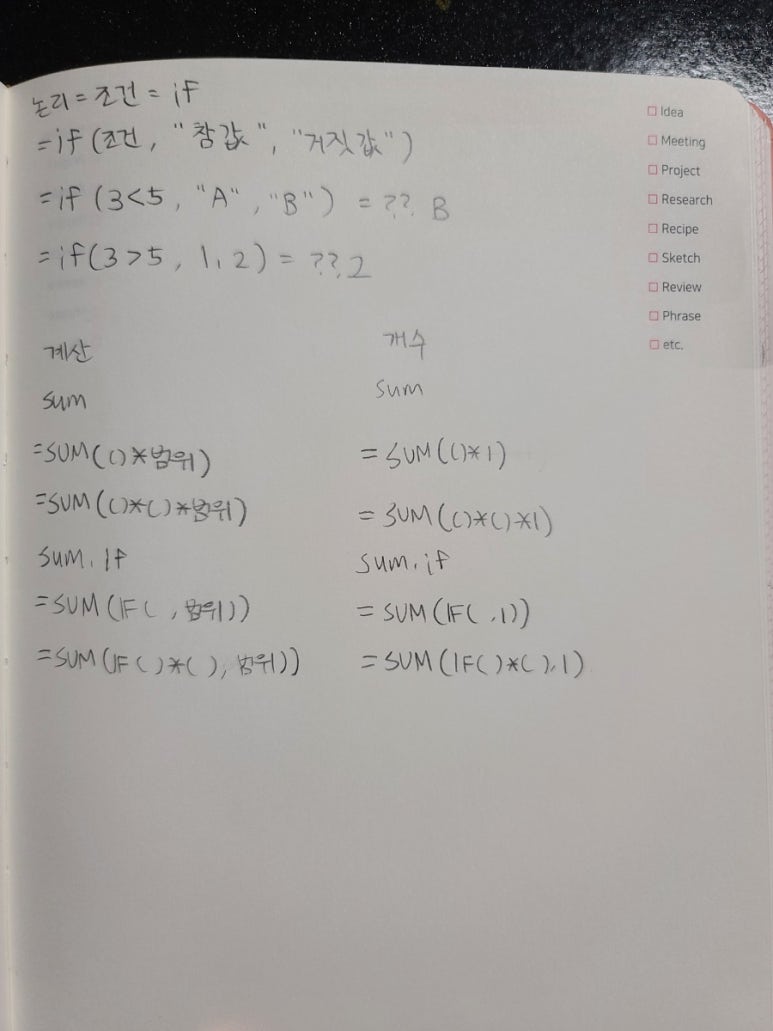 논리=조건=if
=if(조건, "참값", "거짓값")
=if(3<5, "A", "B") = ?? B
=if(3>5, 1, 2) = ?? 2
계산
sum
=SUM(()*범위)
=SUM(()*()*범위)
sum, if
=SUM(IF( , 범위))
=SUM(IF( )*( ), 범위))
개수
sum
=SUM(()*1)
=SUM(()*()*1)
sum, if
=SUM(IF( ,1))
=SUM(IF( )*( ),1)
Idea
Meeting
Project
Research
Recipe
Sketch
Review
Phrase
etc.